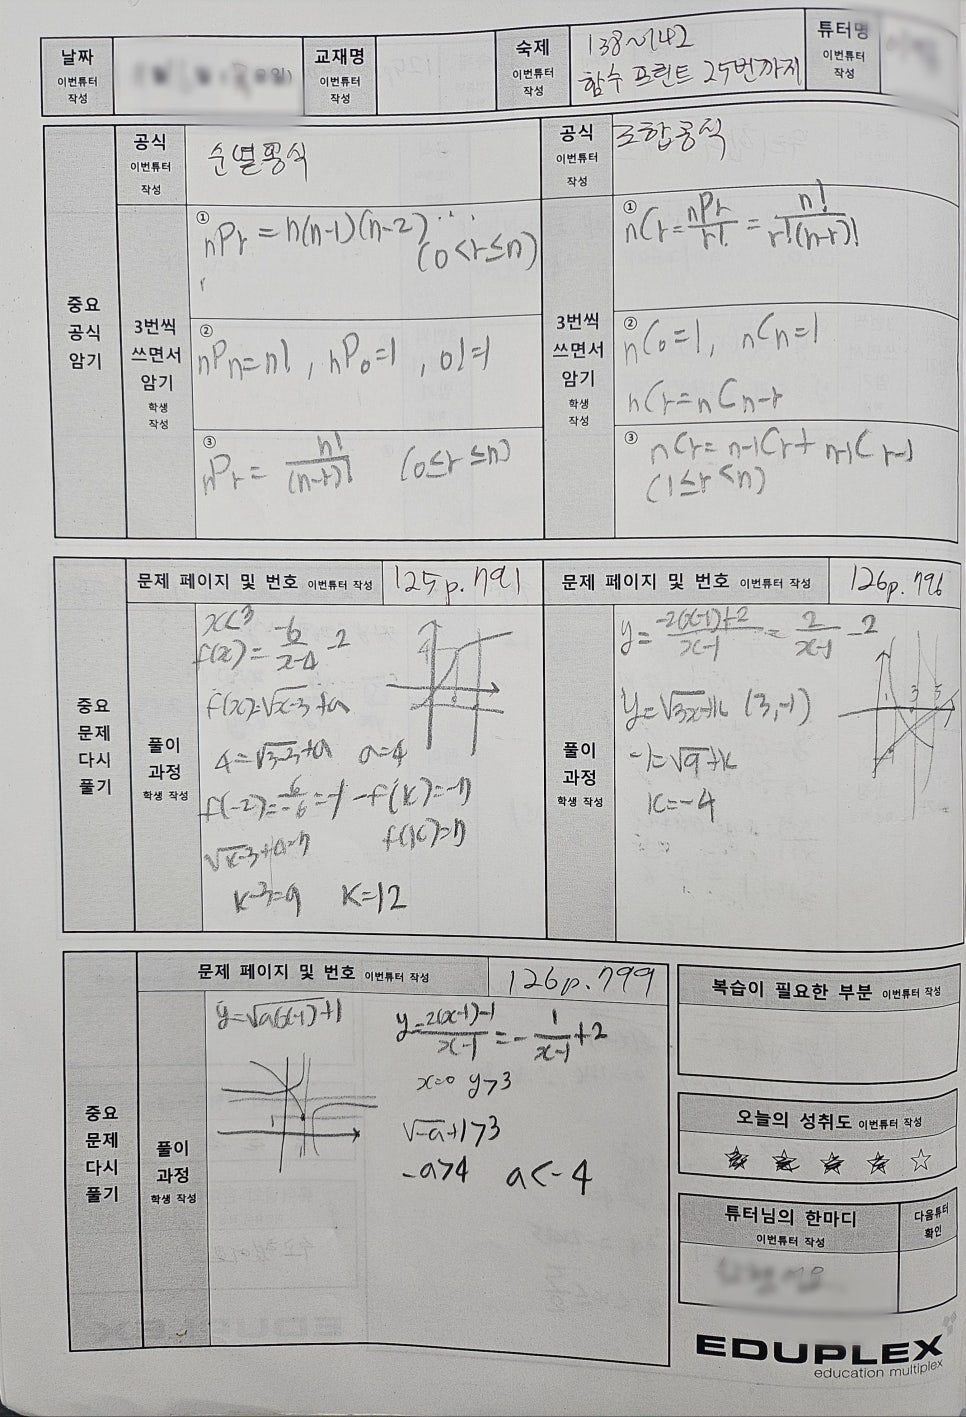 날짜
이번튜터
작성
교재명
이번튜터
작성
숙제
이번튜터
작성
138~142
함수 프린트 25번까지
튜터명
이번튜터
작성
중요
공식
암기
공식
이번튜터
작성
순열공식
3번씩
쓰면서
암기
학생
작성
① nPr = n(n-1)(n-2)...
(0<r≤n)
② nPn=n!, nP0=1, 0!=1
③ nPr = n!/(n-r)! (0≤r≤n)
공식
이번튜터
작성
조합공식
3번씩
쓰면서
암기
학생
작성
① nCr = nPr/r! = n!/r!(n-r)!
② nC0=1, nCn=1
nCr=nCn-r
③ nCr= n-1Cr + n-1Cr-1
(1≤r<n)
중요
문제
다시
풀기
문제 페이지 및 번호 이번튜터 작성
125p. 791
풀이
과정
학생 작성
x<3
f(x)= -6/x-4 -2
f(x)=√x-3+a
4=√3-3+a a=4
f(-2)= -6/-6 =-1 -f(k)=-7
√k-3+4=7 f(k)=7
k-3=9 k=12
문제 페이지 및 번호 이번튜터 작성
126p. 796
풀이
과정
학생 작성
y= -2(x-1)+2/x-1 = 2/x-1 -2
1 3 5
y=√3x+k (3,-1)
-1=√9+k
k=-4
중요
문제
다시
풀기
문제 페이지 및 번호 이번튜터 작성
126p. 799
풀이
과정
학생 작성
y=√a(x-1)+1
y= 2(x-1)-1/x-1 = - 1/x-1 +2
x=0 y>3
1
√-a+1>3
-a>4 a<-4
복습이 필요한 부분 이번튜터 작성
오늘의 성취도 이번튜터 작성
튜터님의 한마디
이번튜터 작성
다음튜터
확인
EDUPLEX
education multiplex